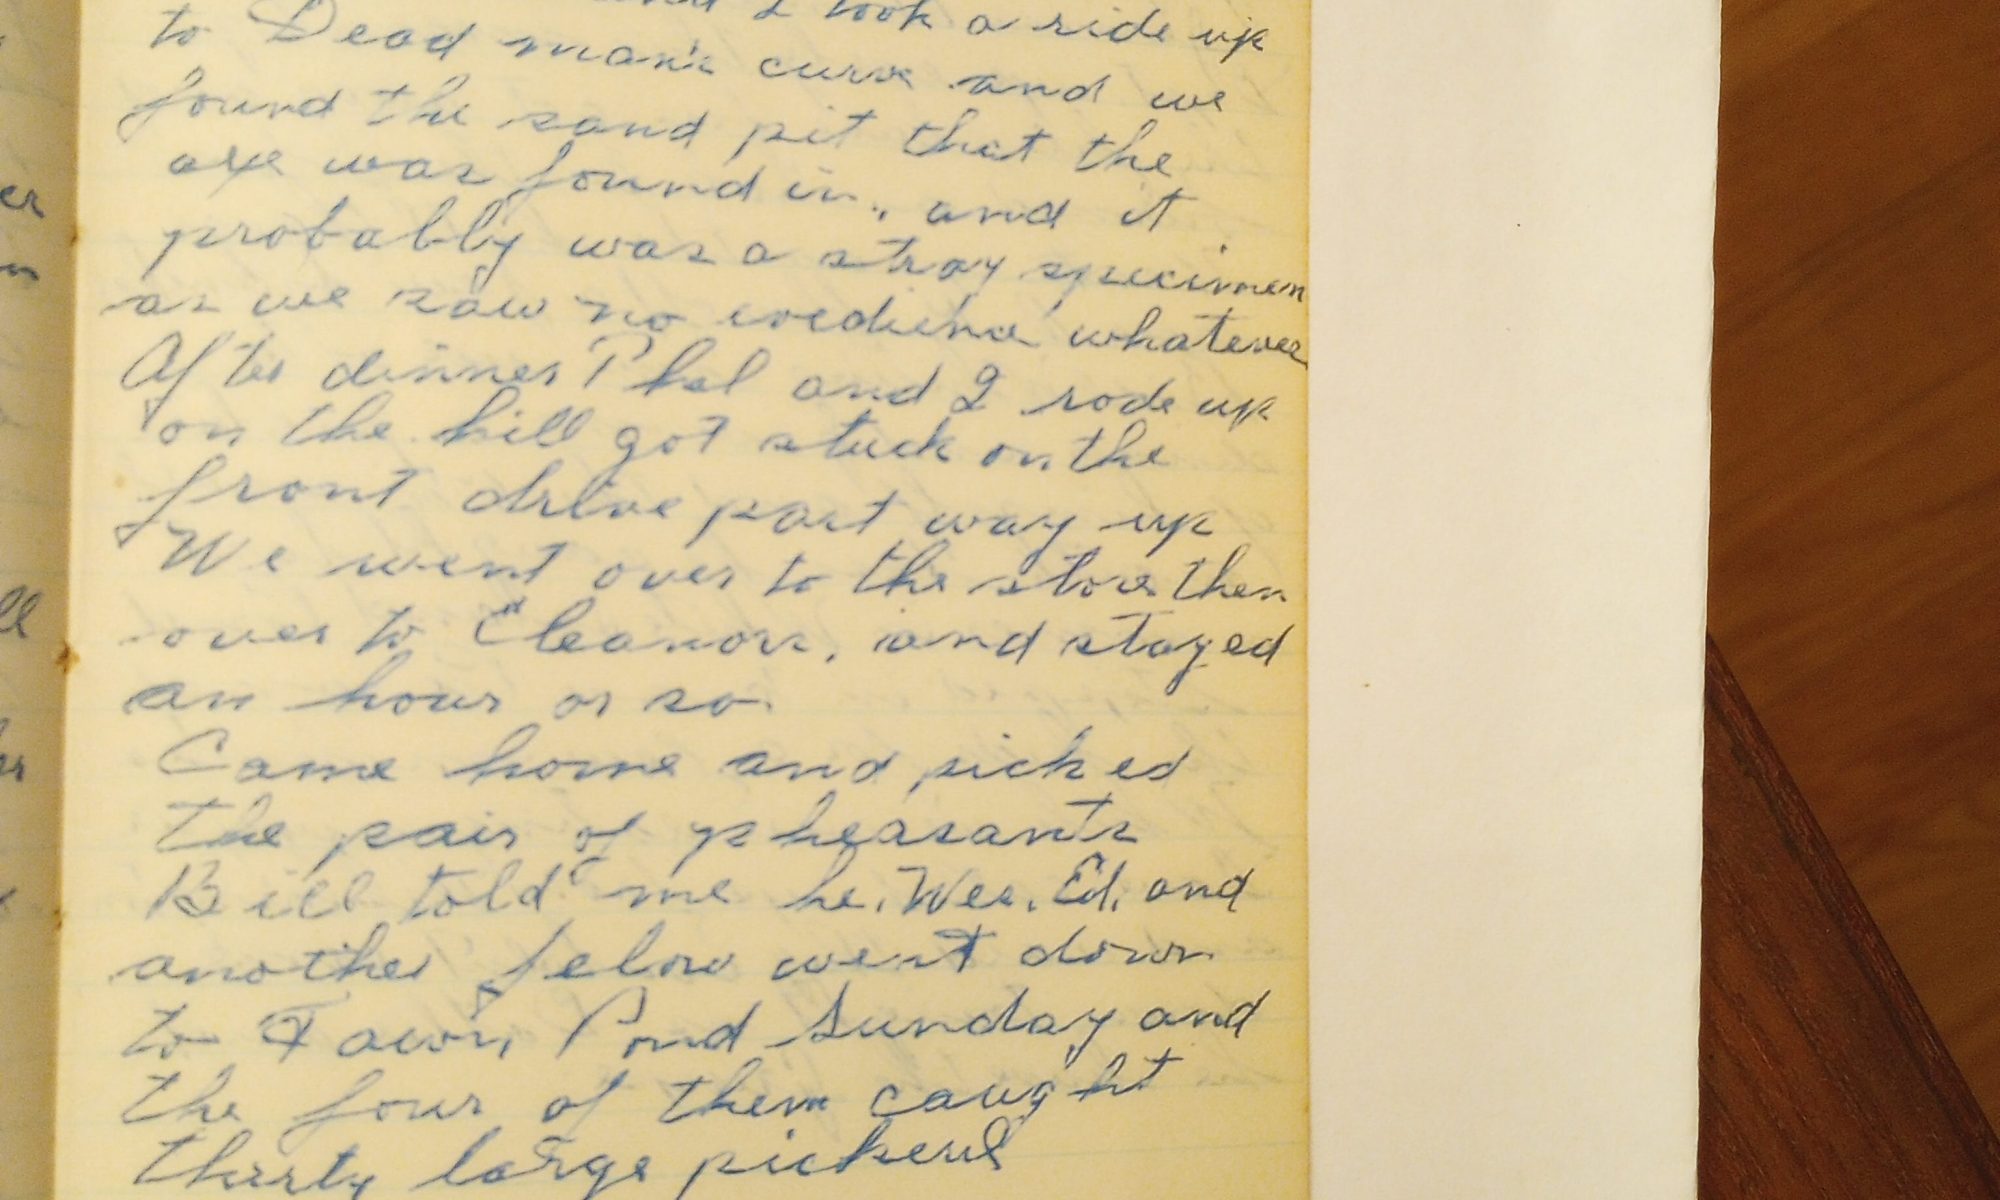 and I took a ride up
to Dead man's curve and we
found the sand pit that the
axe was found in, and it
probably was a stray specimen
as we saw no evedience whatever
After dinner Phil and I rode up
on the hill got stuck on the
front drive part way up
We went over to the store then
over to Eleanors, and stayed
an hour or so.
Came home and picked
the pair of pheasants
Bill told me he, Wes, Ed, and
another felow went down
to Town Pond Sunday and
the four of them caught
thirty large pickerel
er
ll